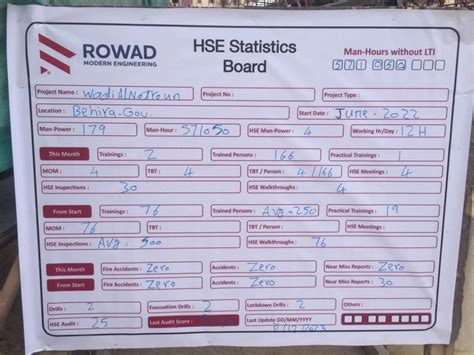 ROWAD
MODERN ENGINEERING
HSE Statistics
Board
Man-Hours without LTI
571 050
Project Name : Wadi AlNatroun Project No : Project Type :
Location : Behira.Gov Start Date : June - 2022
Man-Power : 179 Man-Hour : 571050 HSE Man-Power : 4 Working Hr/Day : 12H
This Month Trainings : 2 Trained Persons : 166 Practical Trainings : 1
MOM : 4 TBT : 4 TBT / Person : 4/166 HSE Meetings : 4
HSE Inspections : 30 HSE Walkthroughs : 4
From Start Trainings : 76 Trained Persons : Avg-250 Practical Trainings : 19
MOM : 76 TBT : TBT / Person : HSE Meetings :
HSE Inspections : Avg: 500 HSE Walkthroughs : 76
This Month Fire Accidents : Zero Accidents : Zero Near Miss Reports : Zero
From Start Fire Accidents : Zero Accidents : Zero Near Miss Reports : 30
Drills : 2 Evacuation Drills : 2 Lockdown Drills : 2 Others :
HSE Audit : 25 Last Audit Score : Last Update DD/MM/YYYY